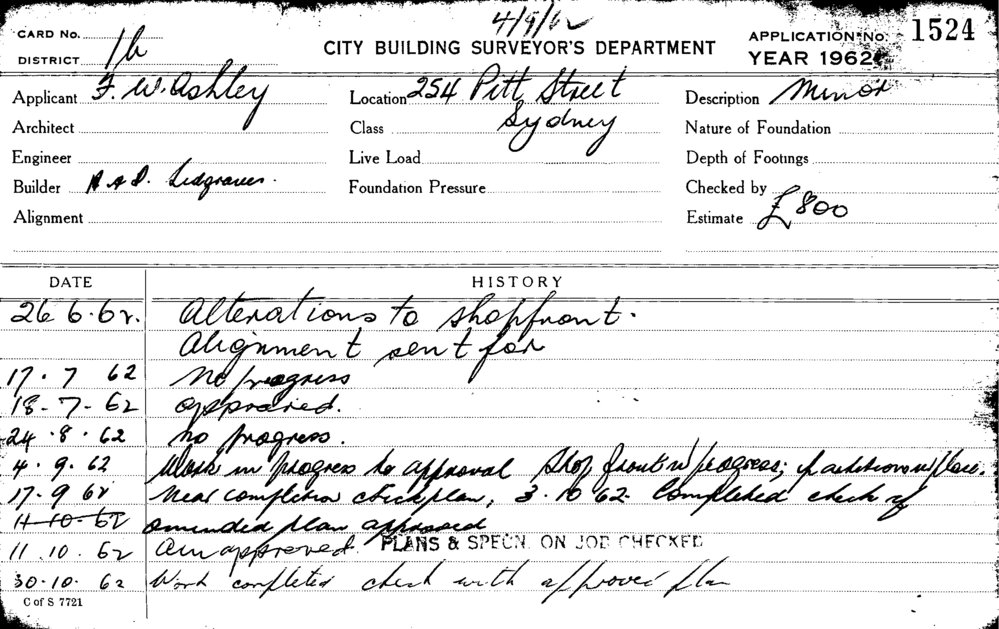 4/9/62
CARD No.
DISTRICT 1b
CITY BUILDING SURVEYOR'S DEPARTMENT
APPLICATION No. 1524
YEAR 1962
Applicant F. W. Ashley
Location 254 Pitt Street
Description Minor
Architect
Class Sydney
Nature of Foundation
Engineer
Live Load
Depth of Footings
Builder
Foundation Pressure
Checked by
Alignment
Estimate £800
DATE HISTORY
26 6.62. Alterations to shopfront.
Alignment sent for
17.7 62 No progress
18-7-62 approved.
24.8.62 no progress.
4.9.62 Work in progress to approval Shop front in progress; partitions in place.
17-9 62 Near completion check plan, 3.10 62. Completed check of
11-10-62 amended plan approved
11.10.62 Am approved. PLANS & SPECN. ON JOB CHECKED
30.10.62 Work completed check with approved plan
C of S 7721